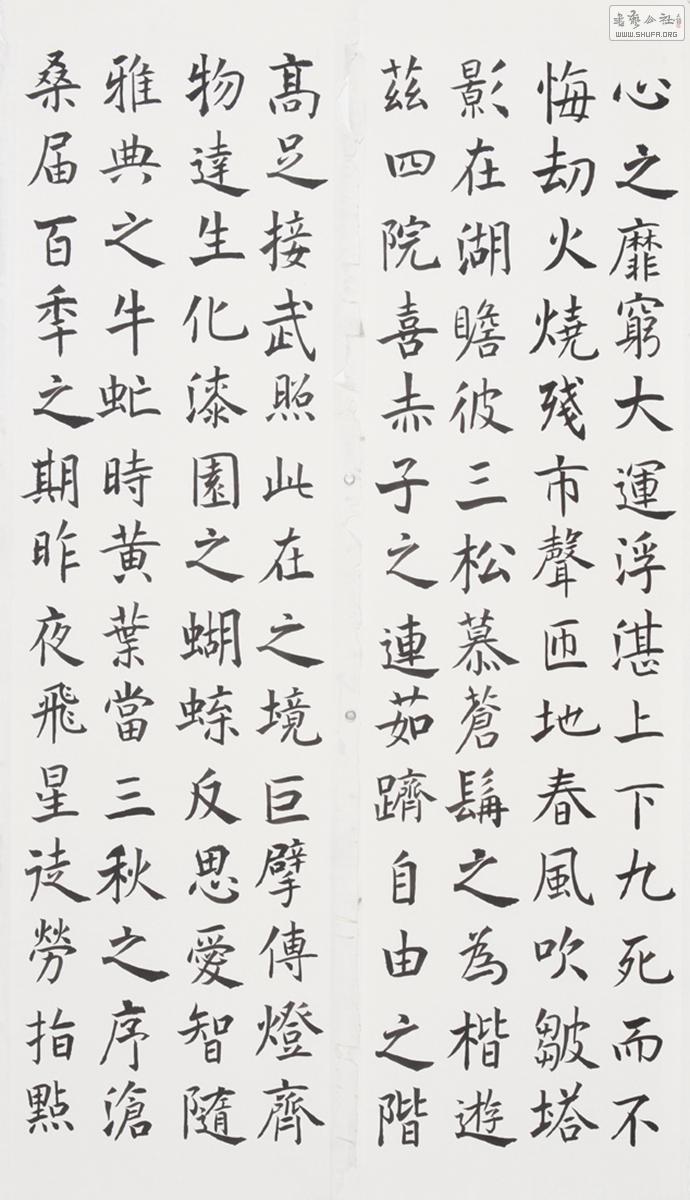 心之靡窮大運浮湛上下九死而不
悔劫火燒殘市聲匝地春風吹皺塔
影在湖瞻彼三松慕蒼髯之為楷遊
茲四院喜赤子之連茹躋自由之階
髙足接武照此在之境巨擘傳燈齊
物達生化漆園之蝴蝶反思愛智隨
雅典之牛虻時黃葉當三秋之序滄
桑届百秊之期昨夜飛星徒勞指點
書藝公社
WWW.SHUFA.ORG